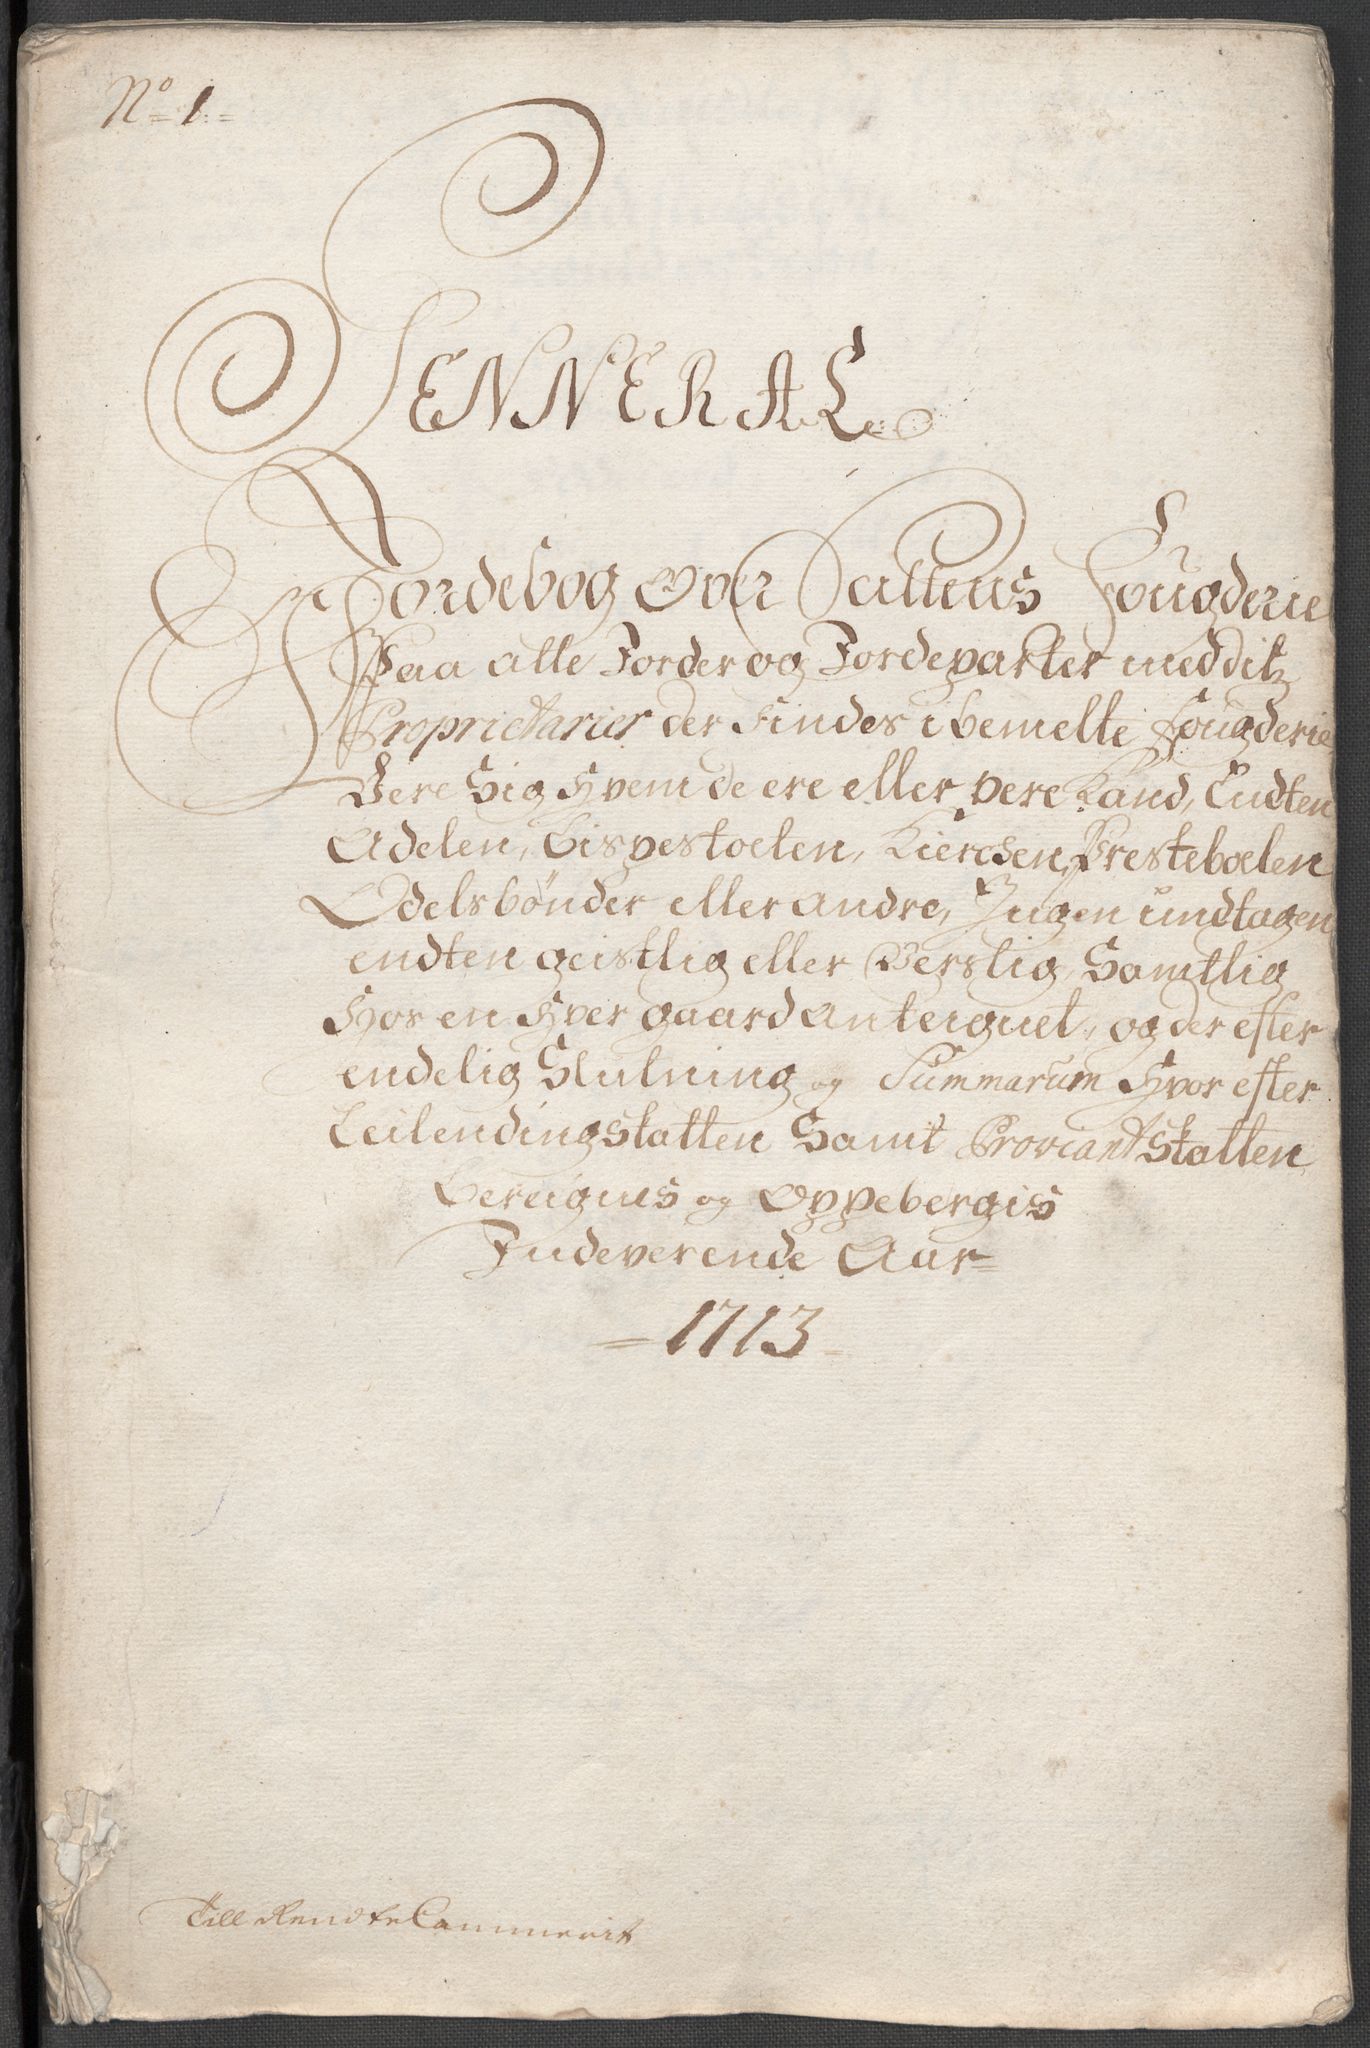 No 1
GENNERAL
Jordebog Over Saltens Fougderie
Paa alle Jorder og Jordeparter med ditz
Proprietarier der Findes i bemelte Fougderie
Være Sig Hvem de ere eller være Kand, Endten
Adelen, Bispestoelen, Kierchen, Presteboelen
Odelsbönder eller andre, Ingen undtagen
endten geistlig eller Verslig, Samtlig
Hos en Hver gaard anteignet, og der efter
endelig Slutning og Summarum Hvor efter
Leilendingskatten Samt Proviantskatten
Bereignes og Oppebergis
Indeverende Aar
1713
Till RendteCammerit